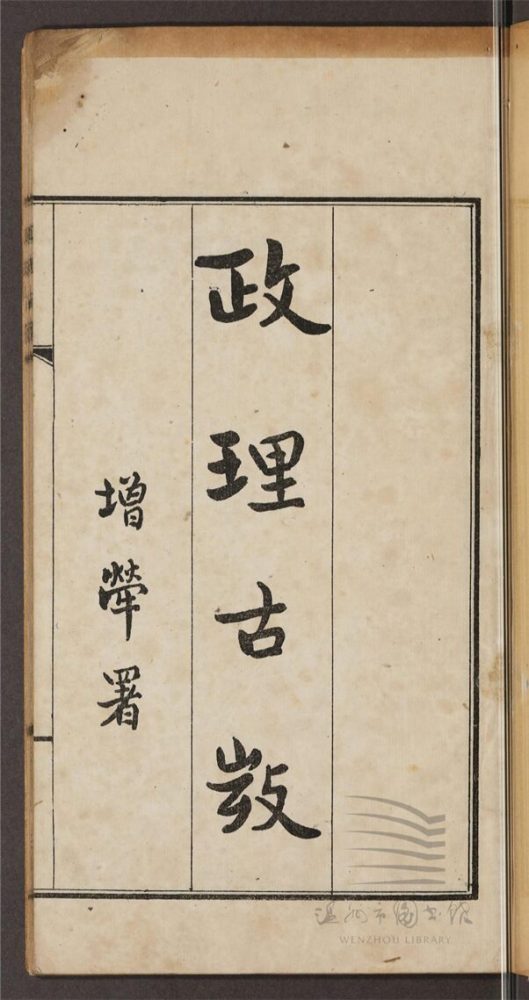 政理古𢼸
增犖署
温州市图书馆
WENZHOU LIBRARY